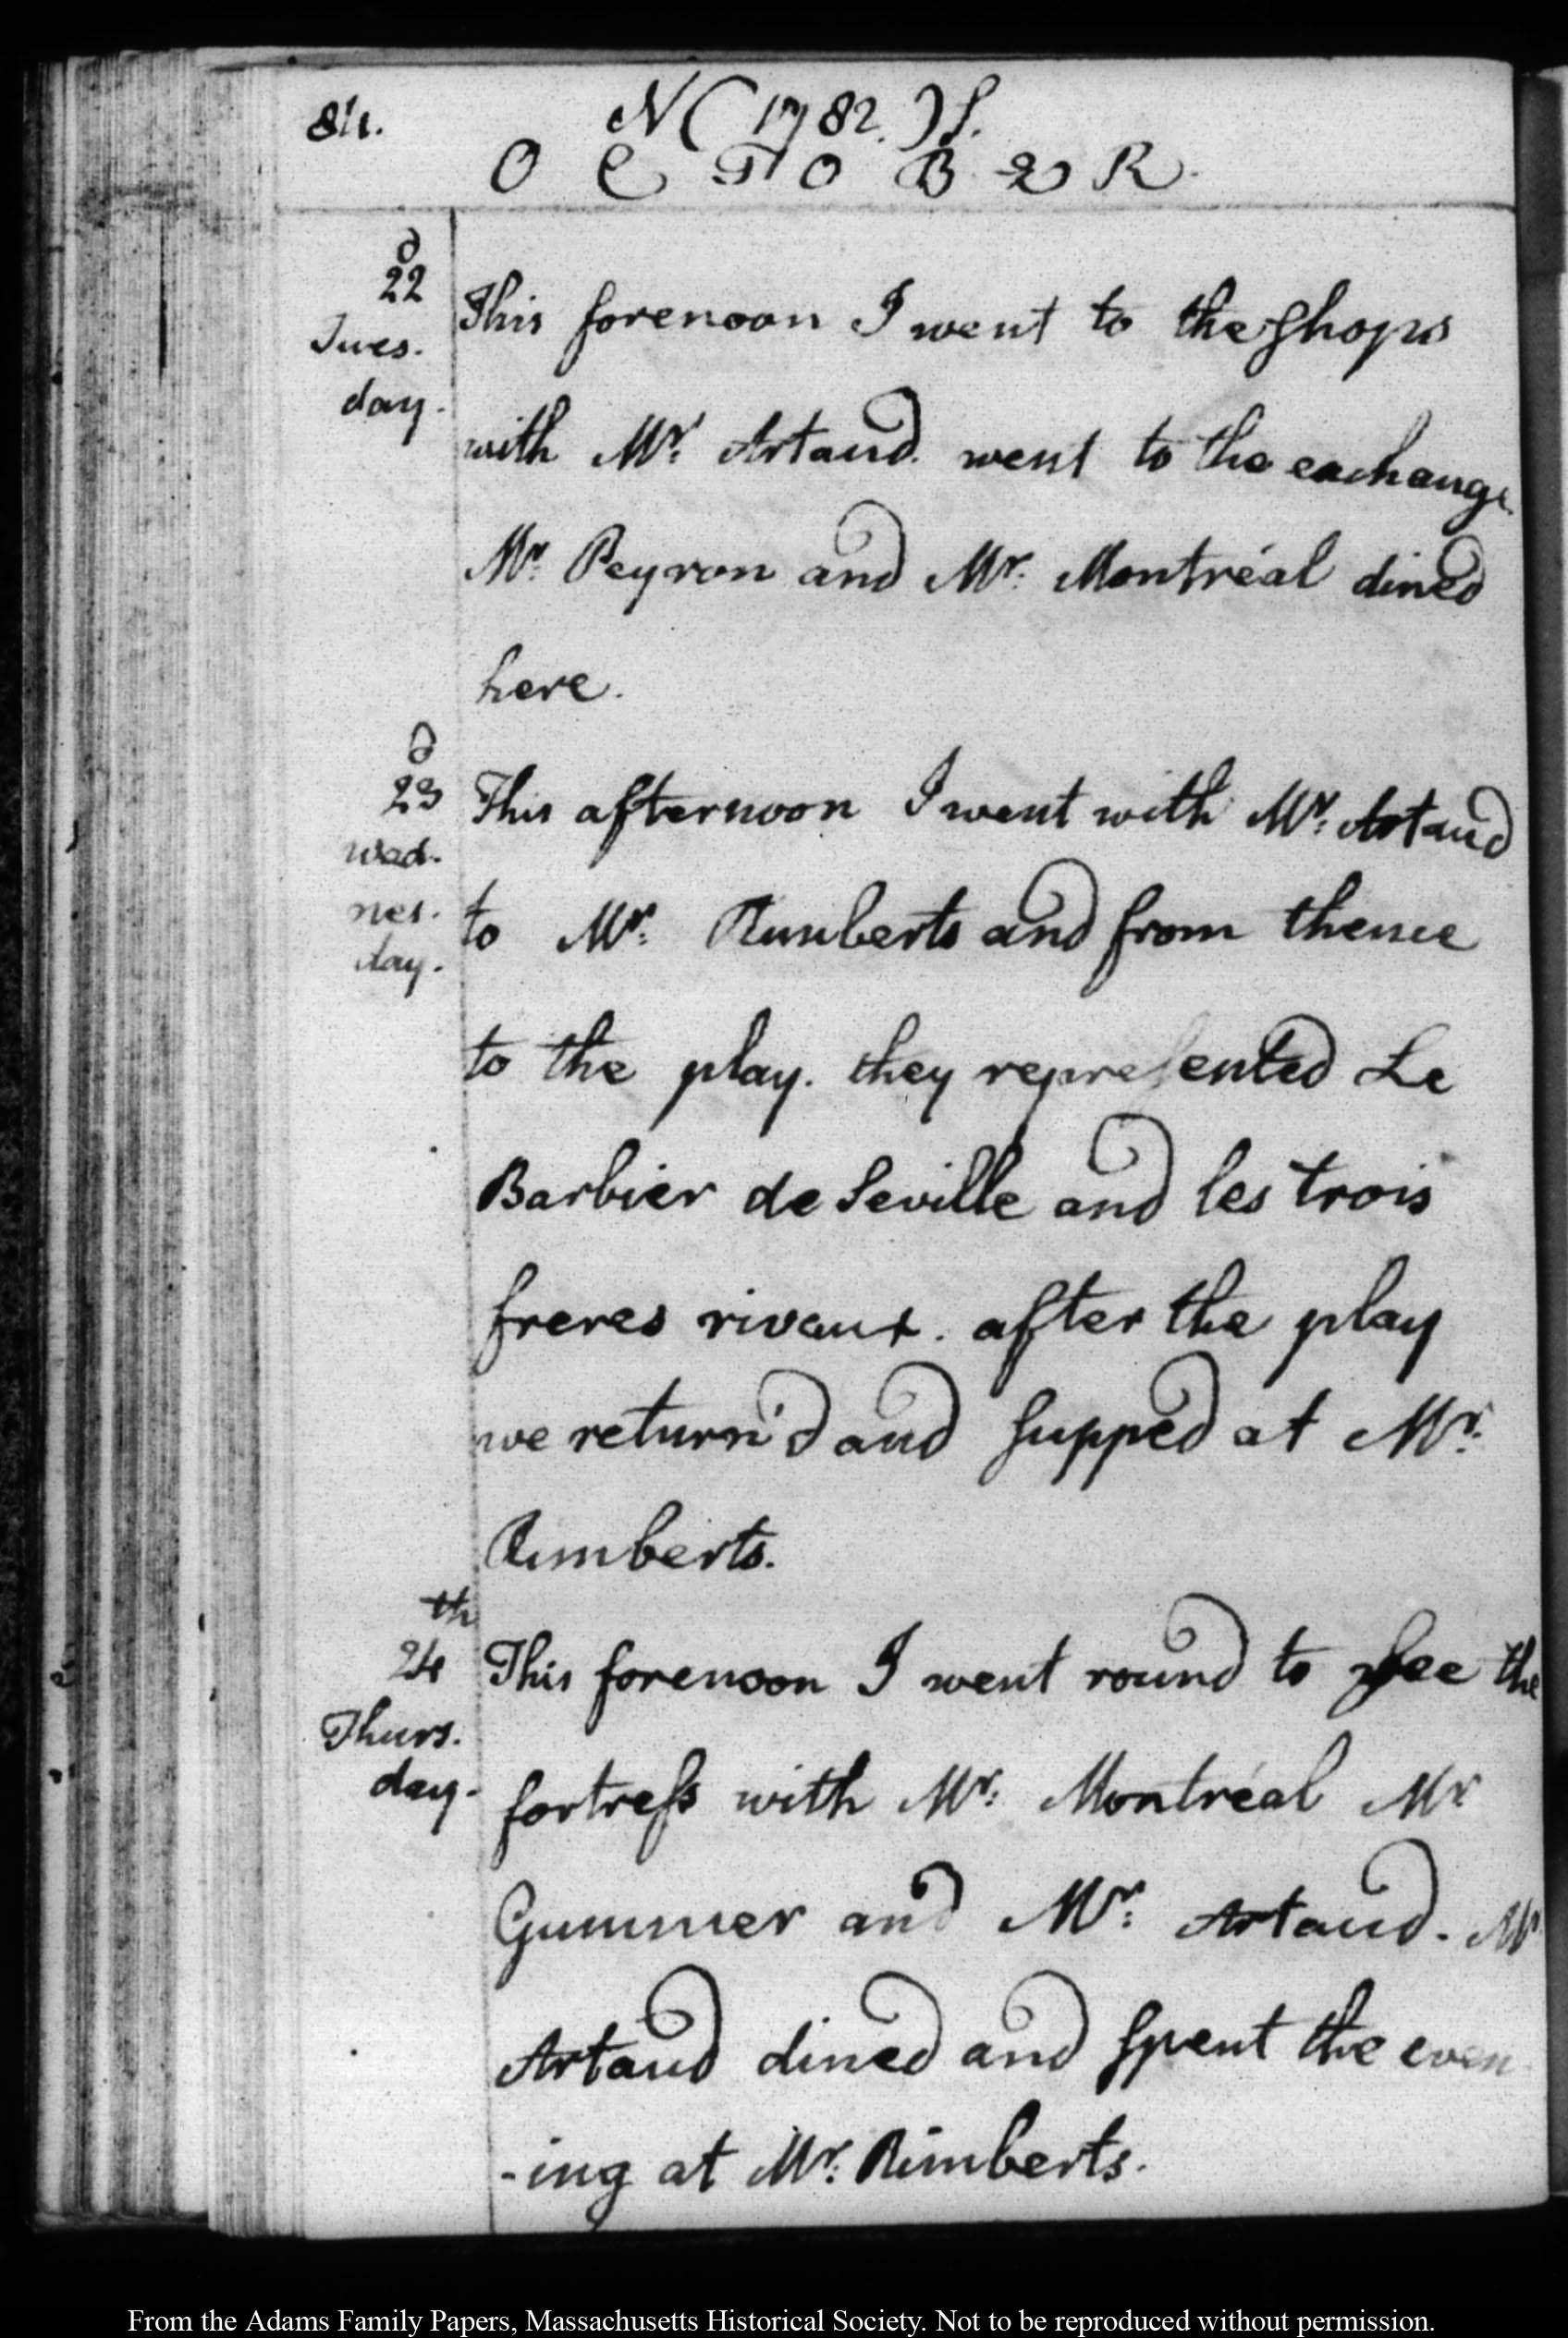 84.
N (1782.) S.
OCTOBER.
d
22
Tues.
day.
This forenoon I went to the shops
with Mr. Artaud. went to the exchange.
Mr. Peyron and Mr. Montréal dined
here.
d
23
Wed.
nes.
day.
This afternoon I went with Mr. Artaud
to Mr. Rimberts and from thence
to the play. they represented Le
Barbier de Seville and les trois
freres rivaux. after the play
we return'd and supped at Mr.
Rimberts.
th
24
Thurs.
day.
This forenoon I went round to see the
fortress with Mr. Montréal Mr.
Gummer and Mr. Artaud. Mr
Artaud dined and spent the even
-ing at Mr. Rimberts.
From the Adams Family Papers, Massachusetts Historical Society. Not to be reproduced without permission.